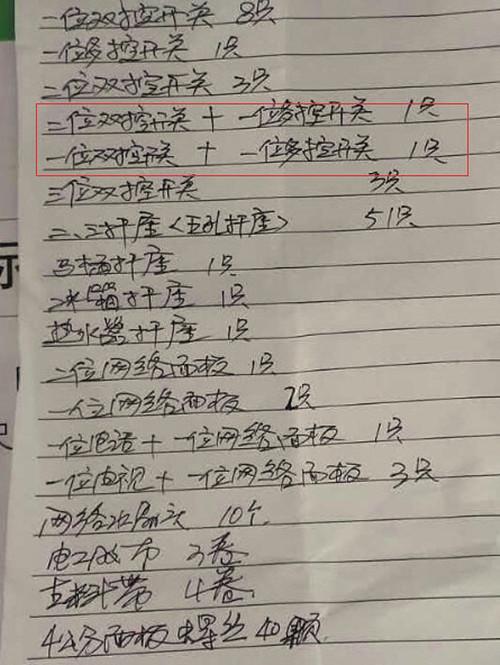 一位双控开关 8只
一位多控开关 1只
二位双控开关 3只
二位双控开关 + 一位多控开关 1只
一位双控开关 + 一位多控开关 1只
三位双控开关 3只
二、三扦座〈五孔扦座〉 51只
马桶扦座 1只
冰箱扦座 1只
热水器扦座 1只
二位网络面板 1只
一位网络面板 2只
一位电话 + 一位网络面板 1只
一位电视 + 一位网络面板 3只
网络水晶头 10个
电工胶布 3卷
生料带 4卷
4公分面板螺丝 40颗